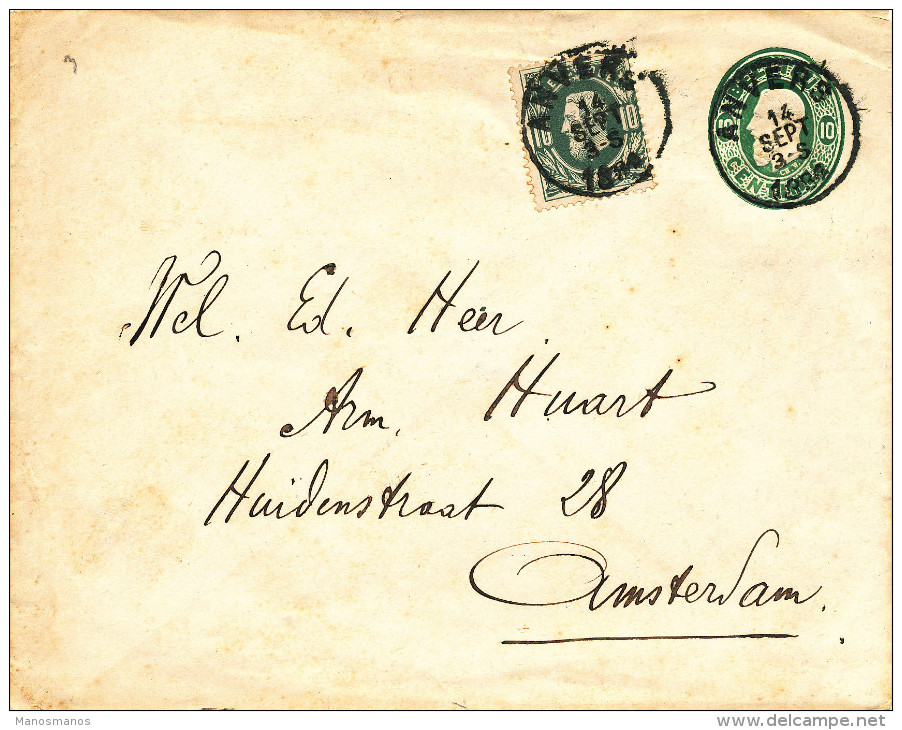 ANVERS
14
SEPT
3-S
10
ANVERS
14
SEPT
3-S
10
CENT
Wel. Ed. Heer
Arm. Huart
Huidenstraat 28
Amsterdam.
Manosmanos
www.delcampe.net